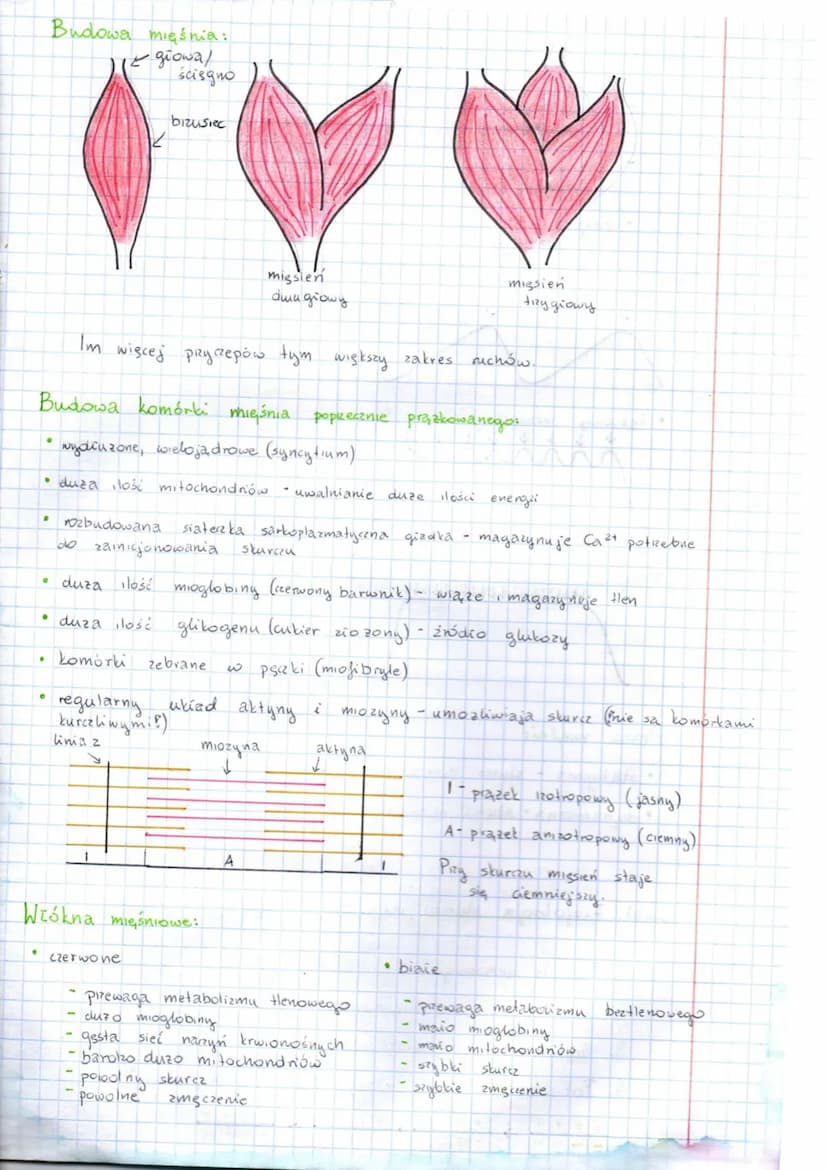 Budowa mięśnia:
głowa/
ścięgno
brzusiec
mięsień
dwugłowy
mięsień
trzygłowy
Im więcej przyczepów tym większy zakres ruchów.
Budowa komórki mięśnia poprzecznie prążkowanego:
• wydłużone, wielojądrowe (syncytium)
• duża ilość mitochondriów - uwalnianie duże ilości energii
• rozbudowana siateczka sarkoplazmatyczna gładka - magazynuje Ca²⁺ potrzebne
do zainicjonowania skurczu
• duża ilość mioglobiny (czerwony barwnik) - wiąże i magazynuje tlen
• duża ilość glikogenu (cukier złożony) - źródło glukozy
• komórki zebrane w pęczki (miofibryle)
• regularny układ aktyny i miozyny - umożliwiają skurcz (nie są komórkami
kurczliwymi!)
linia z miozyna aktyna
I - prążek izotropowy (jasny)
A - prążek anizotropowy (ciemny)
I A I
Przy skurczu mięsień staje
się ciemniejszy.
Włókna mięśniowe:
• czerwone
- przewaga metabolizmu tlenowego
- dużo mioglobiny
- gęsta sieć naczyń krwionośnych
- bardzo dużo mitochondriów
- powolny skurcz
- powolne zmęczenie
• białe
- przewaga metabolizmu beztlenowego
- mało mioglobiny
- mało mitochondriów
- szybki skurcz
- szybkie zmęczenie